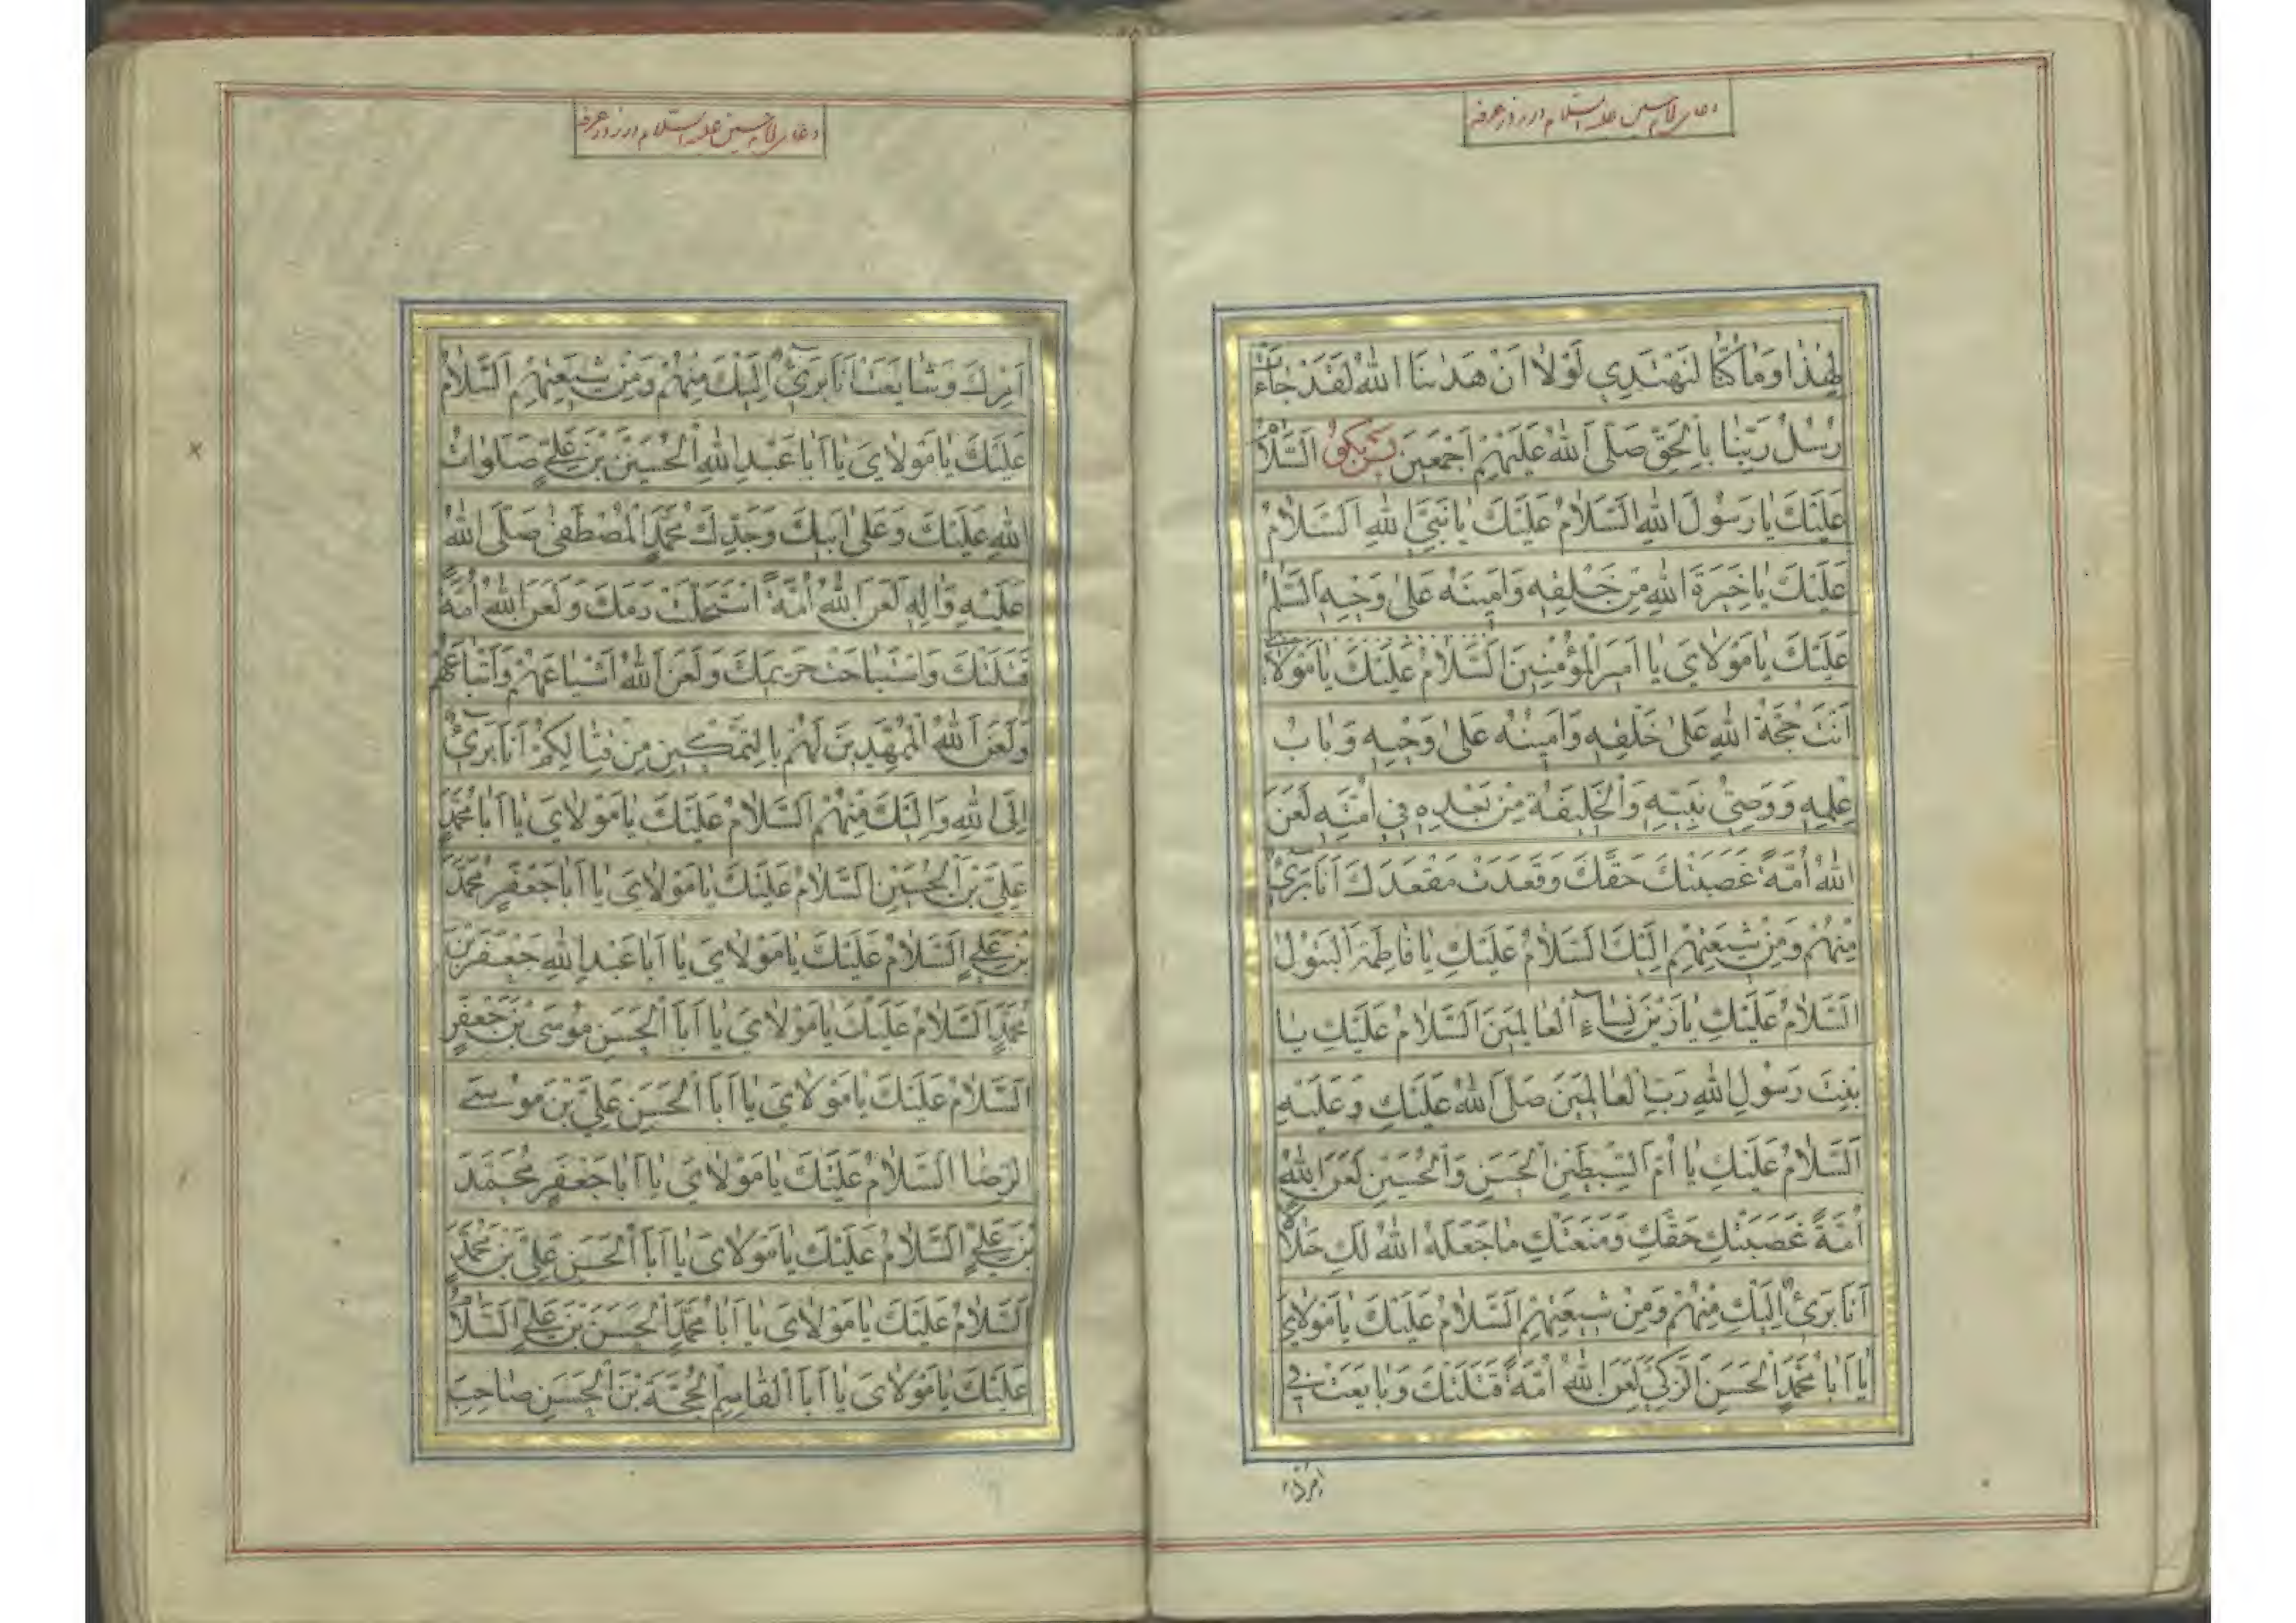 دعای امام حسین علیه السلام در روز عرفه
لِهٰذٰا وَمٰا كُنّٰا لِنَهْتَدِيَ لَوْلٰا اَنْ هَدٰينَا اللهُ لَقَدْ جٰاءَتْ
رُسُلُ رَبِّنٰا بِالْحَقِّ صَلَّى اللهُ عَلَيْهِمْ اَجْمَعينَ پس بگو اَلسَّلاٰمُ
عَلَيْكَ يٰا رَسُولَ اللهِ اَلسَّلاٰمُ عَلَيْكَ يٰا نَبِيَّ اللهِ اَلسَّلاٰمُ
عَلَيْكَ يٰا خِيَرَةَ اللهِ مِنْ خَلْقِهِ وَاَمينَهُ عَلىٰ وَحْيِهِ اَلسَّلٰمُ
عَلَيْكَ يٰا مَوْلاٰيَ يٰا اَميرَ الْمُؤْمِنينَ اَلسَّلاٰمُ عَلَيْكَ يٰا مَوْلاٰيَ
اَنْتَ حُجَّةُ اللهِ عَلىٰ خَلْقِهِ وَاَمينُهُ عَلىٰ وَحْيِهِ وَبٰابُ
عِلْمِهِ وَوَصِيُّ نَبِيِّهِ وَالْخَليفَةُ مِنْ بَعْدِهِ في اُمَّتِهِ لَعَنَ
اللهُ اُمَّةً غَصَبَتْكَ حَقَّكَ وَقَعَدَتْ مَقْعَدَكَ اَنَا بَرىٌٓ
مِنْهُمْ وَمِنْ شيعَتِهِمْ اِلَيْكَ اَلسَّلاٰمُ عَلَيْكِ يٰا فٰاطِمَةُ الْبَتُولُ
اَلسَّلاٰمُ عَلَيْكِ يٰا زَيْنَ نِسٰاءِ الْعٰالَمينَ اَلسَّلاٰمُ عَلَيْكِ يٰا
بِنْتَ رَسُولِ اللهِ رَبِّ الْعٰالَمينَ صَلَّى اللهُ عَلَيْكِ وَعَلَيْهِ
اَلسَّلاٰمُ عَلَيْكِ يٰا اُمَّ السِّبْطَيْنِ الْحَسَنِ وَالْحُسَيْنِ لَعَنَ اللهُ
اُمَّةً غَصَبَتْكِ حَقَّكِ وَمَنَعَتْكِ مٰا جَعَلَهُ اللهُ لَكِ حَلاٰلاً
اَنَا بَرىءٌ اِلَيْكِ مِنْهُمْ وَمِنْ شيعَتِهِمْ اَلسَّلاٰمُ عَلَيْكَ يٰا مَوْلاٰيَ
يٰا اَبٰا مُحَمَّدٍ الْحَسَنَ الزَّكِيَّ لَعَنَ اللهُ اُمَّةً قَتَلَتْكَ وَبٰايَعَتْ في
امرك
دعای امام حسین علیه السلام در روز عرفه
اَمْرِكَ وَشٰايَعَتْ اَنَا بَرىٌٓ اِلَيْكَ مِنْهُمْ وَمِنْ شيعَتِهِمْ اَلسَّلاٰمُ
عَلَيْكَ يٰا مَوْلاٰيَ يٰا اَبٰا عَبْدِ اللهِ الْحُسَيْنَ بْنَ عَلِيٍّ صَلَوٰاتُ
اللهِ عَلَيْكَ وَعَلىٰ اَبيكَ وَجَدِّكَ مُحَمَّدٍ الْمُصْطَفىٰ صَلَّى اللهُ
عَلَيْهِ وَاٰلِهِ لَعَنَ اللهُ اُمَّةً اسْتَحَلَّتْ دَمَكَ وَلَعَنَ اللهُ اُمَّةً
قَتَلَتْكَ وَاسْتَبٰاحَتْ حَريمَكَ وَلَعَنَ اللهُ اَشْيٰاعَهُمْ وَاَتْبٰاعَهُمْ
وَلَعَنَ اللهُ الْمُمَهِّدينَ لَهُمْ بِالتَّمْكينِ مِنْ قِتٰالِكُمْ اَنَا بَرىٌٓ
اِلَى اللهِ وَاِلَيْكَ مِنْهُمْ اَلسَّلاٰمُ عَلَيْكَ يٰا مَوْلاٰيَ يٰا اَبٰا مُحَمَّدٍ
عَلِيَّ بْنَ الْحُسَيْنِ اَلسَّلاٰمُ عَلَيْكَ يٰا مَوْلاٰيَ يٰا اَبٰا جَعْفَرٍ مُحَمَّدَ
بْنَ عَلِيٍّ اَلسَّلاٰمُ عَلَيْكَ يٰا مَوْلاٰيَ يٰا اَبٰا عَبْدِ اللهِ جَعْفَرَ بْنَ
مُحَمَّدٍ اَلسَّلاٰمُ عَلَيْكَ يٰا مَوْلاٰيَ يٰا اَبَا الْحَسَنِ مُوسَى بْنَ جَعْفَرٍ
اَلسَّلاٰمُ عَلَيْكَ يٰا مَوْلاٰيَ يٰا اَبَا الْحَسَنِ عَلِيَّ بْنَ مُوسَى
الرِّضٰا اَلسَّلاٰمُ عَلَيْكَ يٰا مَوْلاٰيَ يٰا اَبٰا جَعْفَرٍ مُحَمَّدَ
بْنَ عَلِيٍّ اَلسَّلاٰمُ عَلَيْكَ يٰا مَوْلاٰيَ يٰا اَبَا الْحَسَنِ عَلِيَّ بْنَ مُحَمَّدٍ
اَلسَّلاٰمُ عَلَيْكَ يٰا مَوْلاٰيَ يٰا اَبٰا مُحَمَّدٍ الْحَسَنَ بْنَ عَلِيٍّ اَلسَّلاٰمُ
عَلَيْكَ يٰا مَوْلاٰيَ يٰا اَبَا الْقٰاسِمِ الْحُجَّةَ بْنَ الْحَسَنِ صٰاحِبَ